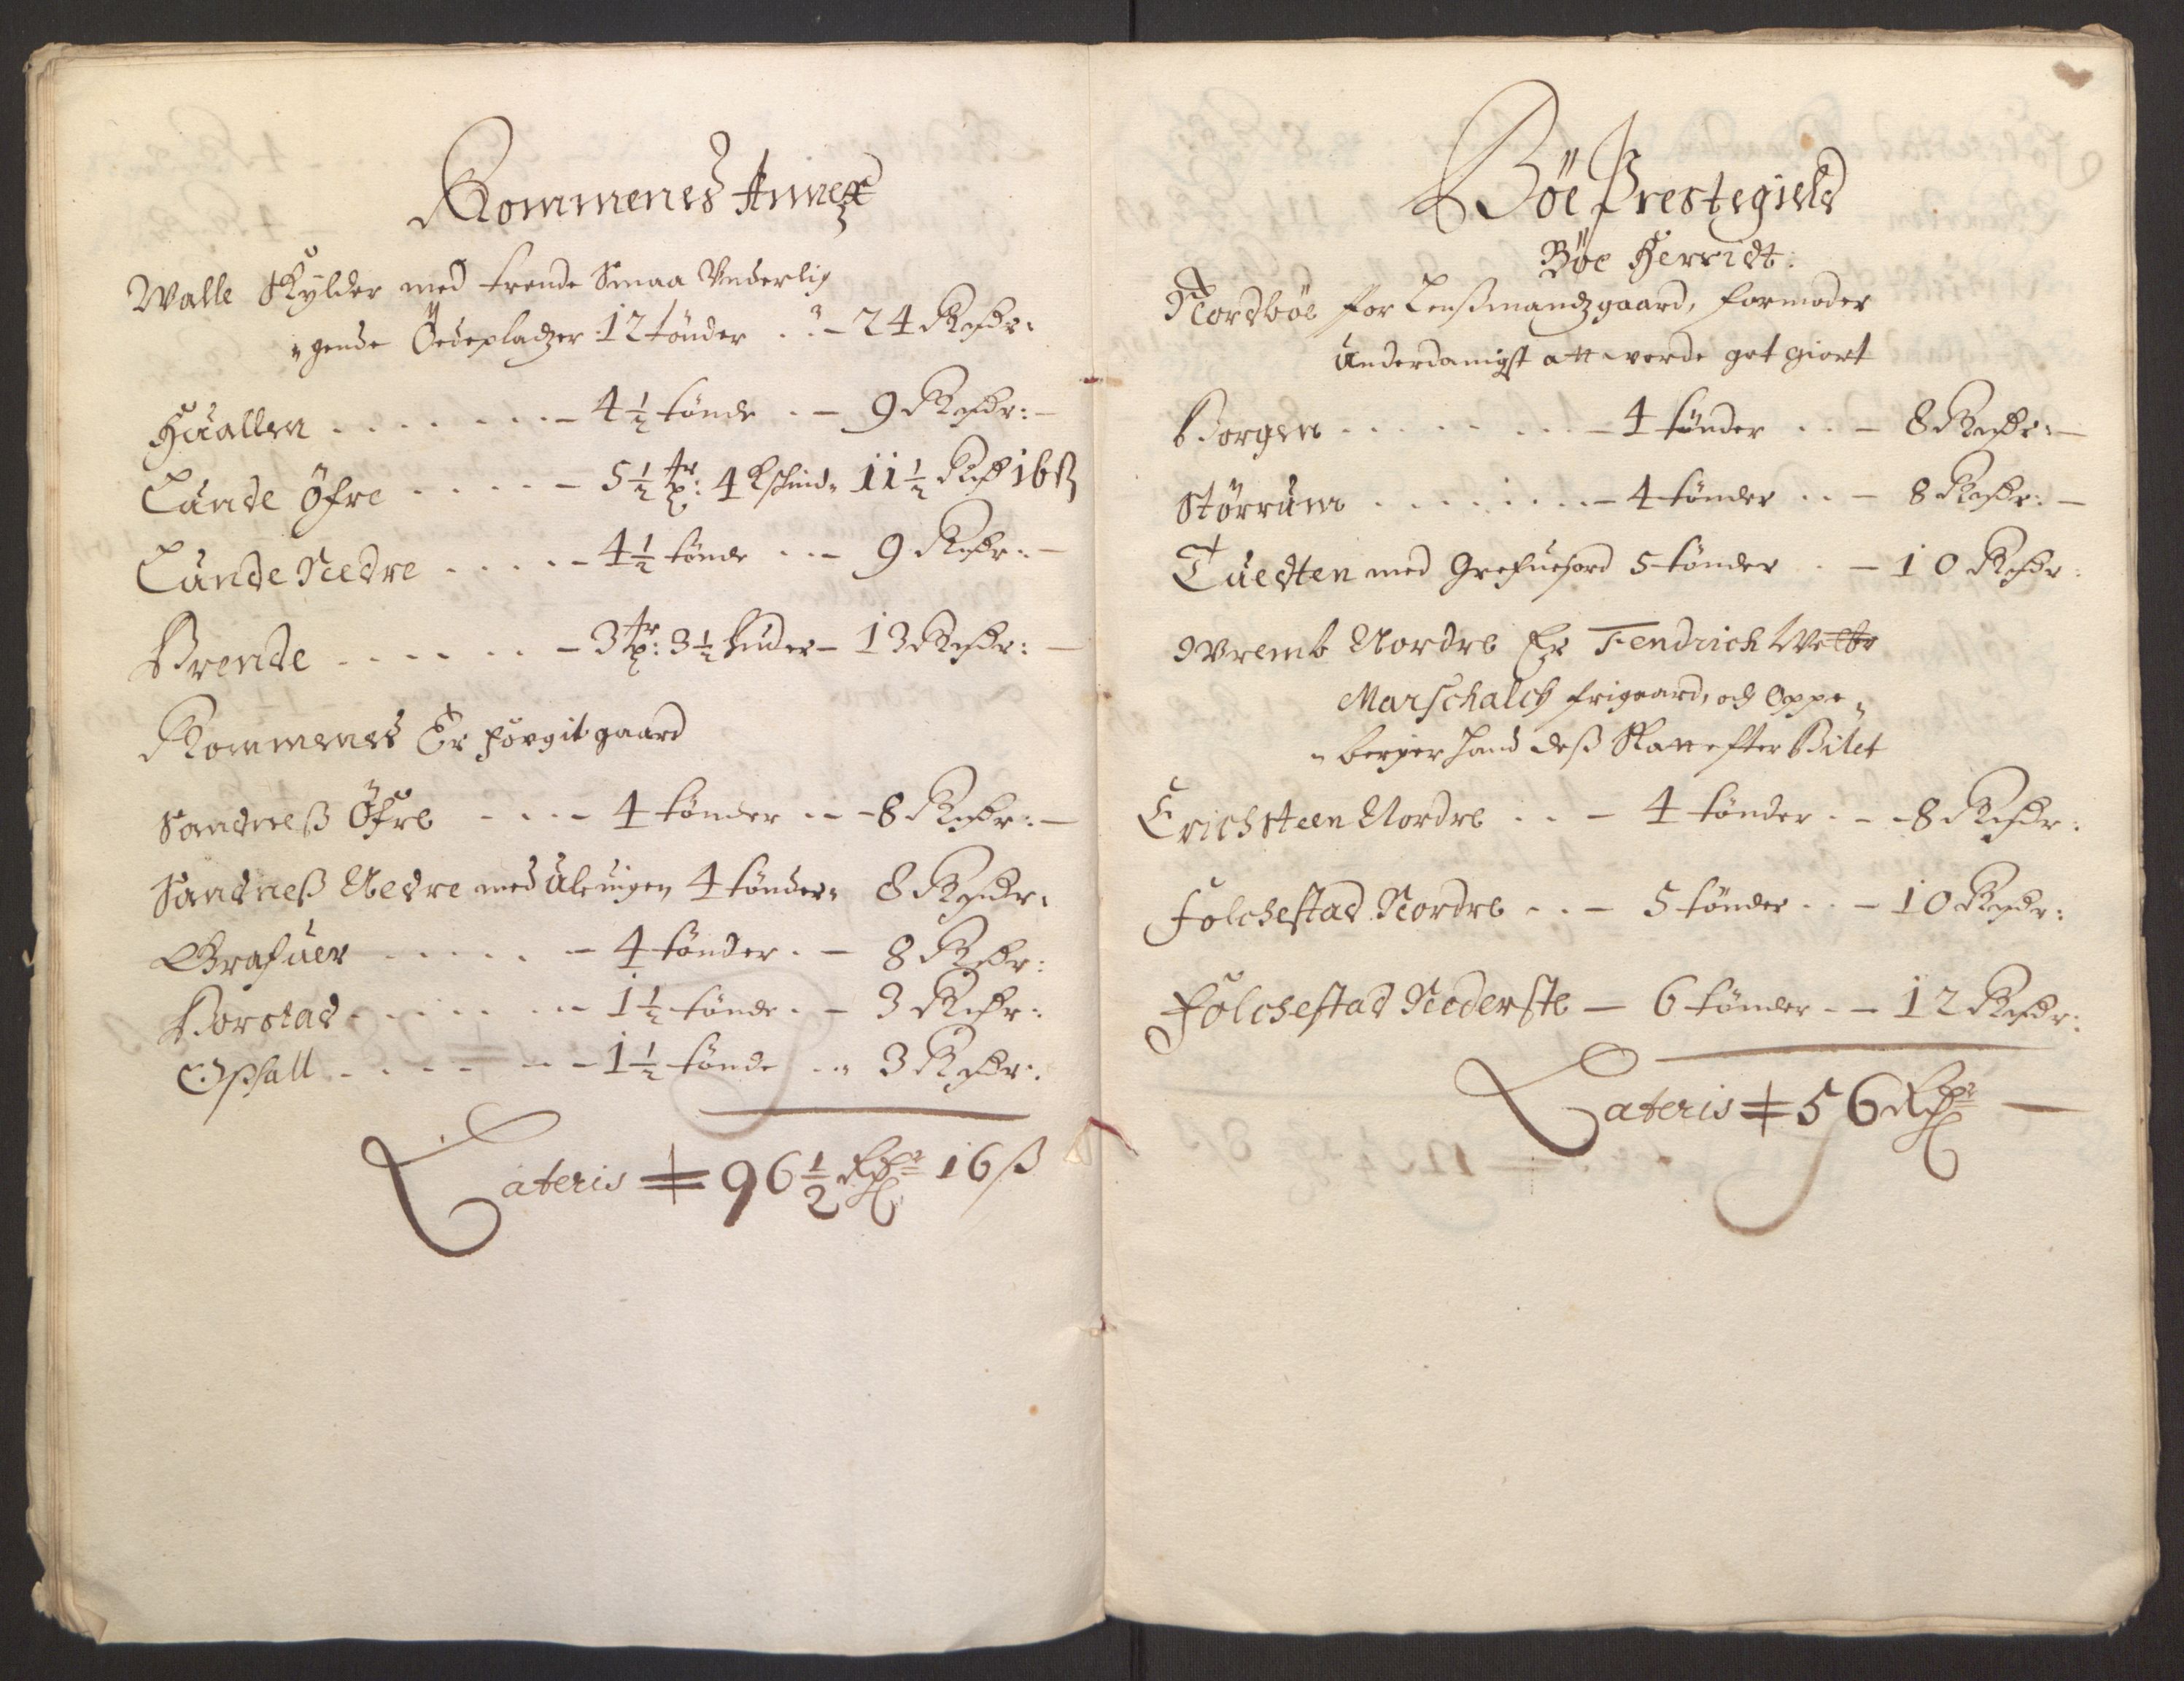 Rommenes Annex
Walle Skylder med trende Smaa Underlig
"gende Ödepladzer 12 tönder . . - 24 Rixdr:
Huallen . . . . . . . - 4 1/2 tönde . - 9 Rixdr: -
Lunde Öfre . . . . . - 5 1/2 tr: 4 Kschind" 11 1/2 Rdr 16 ß
Lunde Nedre . . . . . - 4 1/2 tönde . . - 9 Rixdr: -
Brende . . . . . . - 3 tr: 3 1/2 huder - 13 Rixdr: -
Rommenes Er forgit gaard
Sandneß Öfre - . . - 4 tönder . . - 8 Rixdr: -
Sandneß Nedre med Uleuigen 4 tönder" 8 Rixdr:
Grafuer . . . . . - 4 tönder . - 8 Rixdr:
Borstad . . . . . . - 1 1/2 tönde . - 3 Rixdr:
Opsall . . . . . - 1 1/2 tönde . . " 3 Rixdr:
Lateris 96 1/2 Rdr 16 ß
Böe Prestegield
Böe Herridt:
Nordböe for Lenßmandzgaard, formoder
Underdanigst att worde got giort
Borgen . . . . . . . . - 4 tönder . . - 8 Rixdr: -
Störrum . . . . . . . - 4 tönder . . - 8 Rixdr: -
Tuedten med Grefuefiord 5 tönder . - 10 Rixdr:
Wremb Nordre Er Fendrich
Marschalchs frigaard, och Oppe"
"berger hand deß Skatt efter Bilet
Erichsteen Nordre . . - 4 tönder . - - 8 Rixdr:
Folchestad Nordre . . - 5 tönder . . - 10 Rixdr:
Folchestad Nederste - 6 tönder - - 12 Rixdr:
Lateris 56 Rdr -